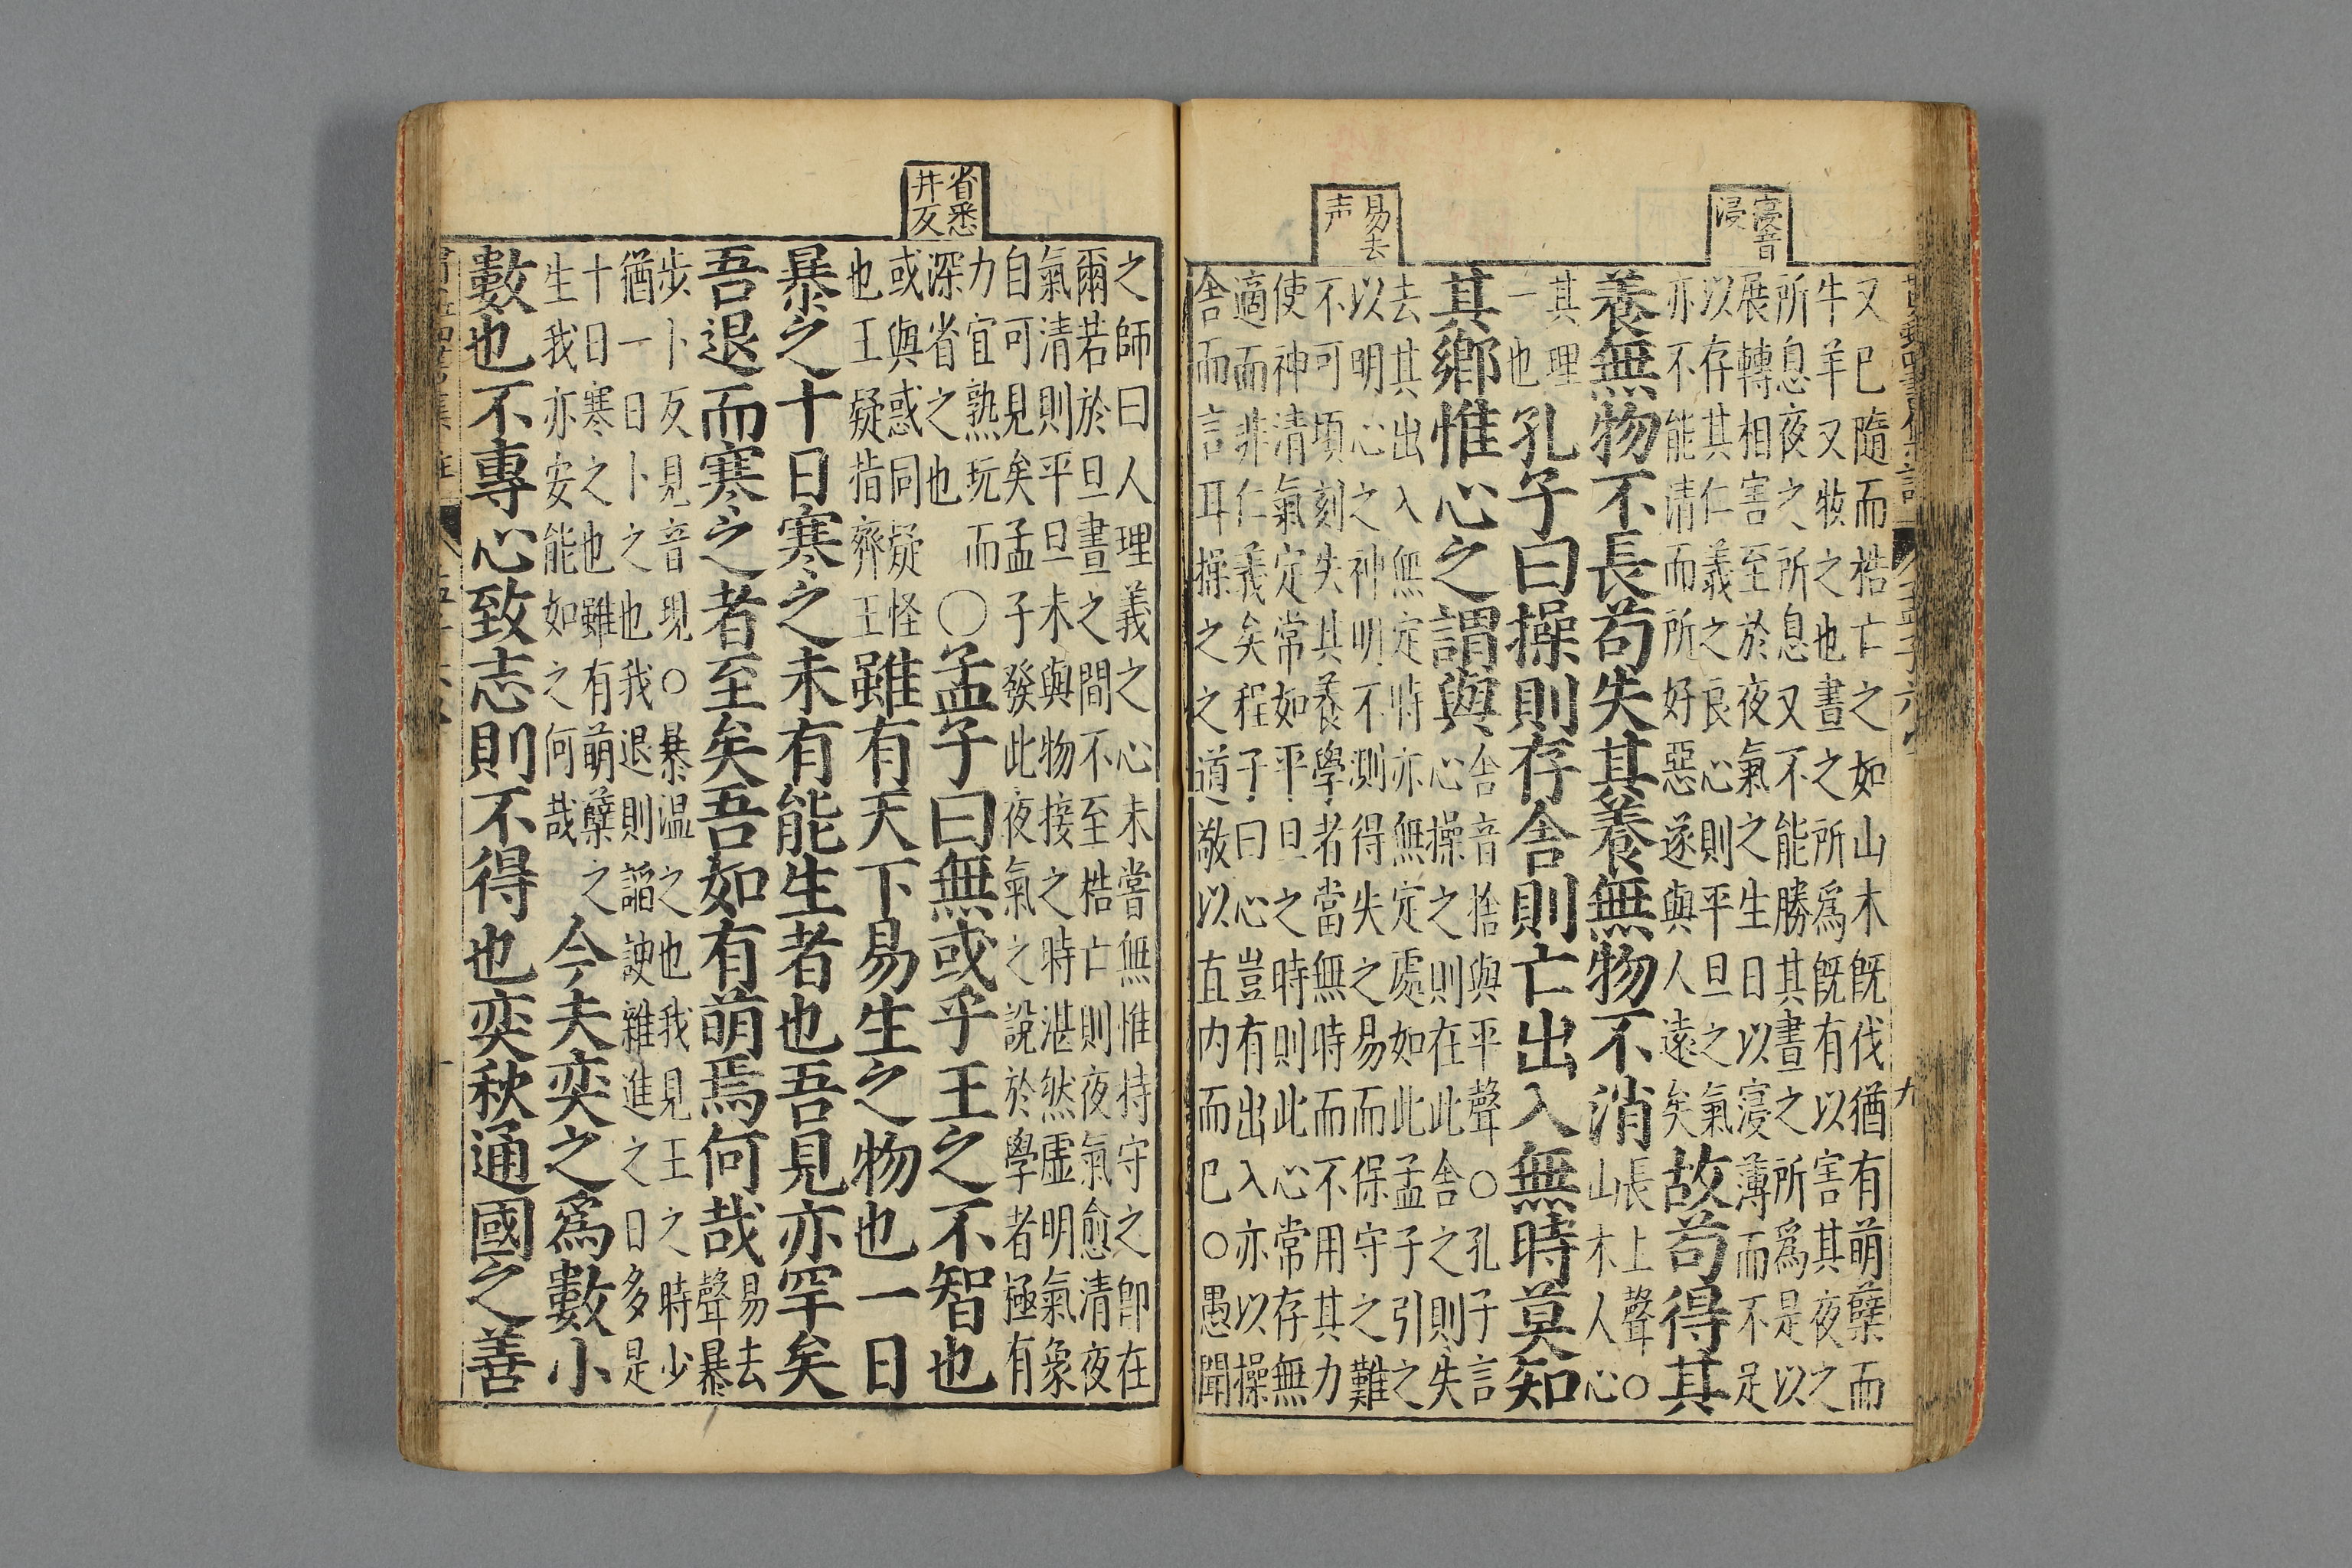 寖音
浸
易去
声
又已隨而梏亡之如山木既伐猶有萌孽而
牛羊又牧之也晝之所爲既有以害其夜之
所息夜之所息又不能勝其晝之所爲是以
展轉相害至於夜氣之生日以寖薄而不足
以存其仁義之良心則平旦之氣
亦不能清而所好惡遂與人遠矣
故苟得其
養無物不長苟失其養無物不消
長上聲○
山木人心
其理
一也
孔子曰操則存舍則亡出入無時莫知
其鄉惟心之謂與
舍音捨與平聲○孔子言
心操之則在此舍之則失
去其出入無定時亦無定處如此孟子引之
以明心之神明不測得失之易而保守之難
不可頃刻失其養學者當無時而不用其力
使神清氣定常如平旦之時則此心常存無
適而非仁義矣程子曰心豈有出入亦以操
舍而言耳操之之道敬以直内而已○愚聞
省悉
井反
之師曰人理義之心未嘗無惟持守之卽在
爾若於旦晝之間不至梏亡則夜氣愈清夜
氣清則平旦未與物接之時湛然虛明氣象
自可見矣孟子發此夜氣之說於學者極有
力宜熟玩而
深省之也
○孟子曰無或乎王之不智也
或與惑同疑怪
也王疑指齊王
雖有天下易生之物也一日
暴之十日寒之未有能生者也吾見亦罕矣
吾退而寒之者至矣吾如有萌焉何哉
易去
聲暴
步卜反見音現○暴温之也我見王之時少
猶一日卜之也我退則諂諛雜進之日多是
十日寒之也雖有萌孽之
生我亦安能如之何哉
今夫奕之爲數小
數也不專心致志則不得也奕秋通國之善